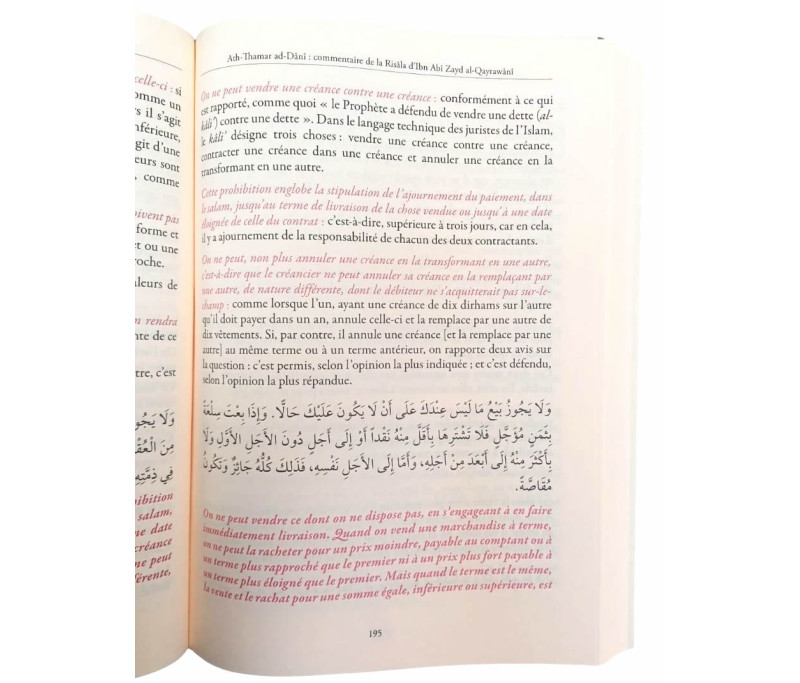 celle-ci : si
omme un
rs il s'agit
nférieure,
git d'une
eurs sont
comme
oivent pas
forme et
et ou une
roche.
aleurs de
n rendra
nte de ce
tre, c'est
وَلَا يَجُو
مِنَ الْعُقُ
فِي ذِمَّتِهِ
hibition
salam,
ne date
créance
ne peut
férente,
Ath-Thamar ad-Dânî : commentaire de la Risâla d'Ibn Abî Zayd al-Qayrawânî
On ne peut vendre une créance contre une créance : conformément à ce qui
est rapporté, comme quoi « le Prophète a défendu de vendre une dette (al-
kâli') contre une dette ». Dans le langage technique des juristes de l'Islam,
le kâli' désigne trois choses : vendre une créance contre une créance,
contracter une créance dans une créance et annuler une créance en la
transformant en une autre.
Cette prohibition englobe la stipulation de l'ajournement du paiement, dans
le salam, jusqu'au terme de livraison de la chose vendue ou jusqu'à une date
éloignée de celle du contrat : c'est-à-dire, supérieure à trois jours, car en cela,
il y a ajournement de la responsabilité de chacun des deux contractants.
On ne peut, non plus annuler une créance en la transformant en une autre,
c'est-à-dire que le créancier ne peut annuler sa créance en la remplaçant par
une autre, de nature différente, dont le débiteur ne s'acquitterait pas sur-le-
champ : comme lorsque l'un, ayant une créance de dix dirhams sur l'autre
qu'il doit payer dans un an, annule celle-ci et la remplace par une autre de
dix vêtements. Si, par contre, il annule une créance [et la remplace par une
autre] au même terme ou à un terme antérieur, on rapporte deux avis sur
la question : c'est permis, selon l'opinion la plus indiquée ; et c'est défendu,
selon l'opinion la plus répandue.
وَلَا يَجُوزُ بَيْعُ مَا لَيْسَ عِنْدَكَ عَلَى أَنْ لَا يَكُونَ عَلَيْكَ حَالًّا. وَإِذَا بِعْتَ سِلْعَةً
بِثَمَنٍ مُؤَجَّلٍ فَلَا تَشْتَرِهَا بِأَقَلَّ مِنْهُ نَقْداً أَوْ إِلَى أَجَلٍ دُونَ الْأَجَلِ الْأَوَّلِ وَلَا
بِأَكْثَرَ مِنْهُ إِلَى أَبْعَدَ مِنْ أَجَلِهِ، وَأَمَّا إِلَى الْأَجَلِ نَفْسِهِ، فَذَلِكَ كُلُّهُ جَائِزٌ وَتَكُونُ
مُقَاصَّةً.
On ne peut vendre ce dont on ne dispose pas, en s'engageant à en faire
immédiatement livraison. Quand on vend une marchandise à terme,
on ne peut la racheter pour un prix moindre, payable au comptant ou à
un terme plus rapproché que le premier ni à un prix plus fort payable à
un terme plus éloigné que le premier. Mais quand le terme est le même,
la vente et le rachat pour une somme égale, inférieure ou supérieure, est
195